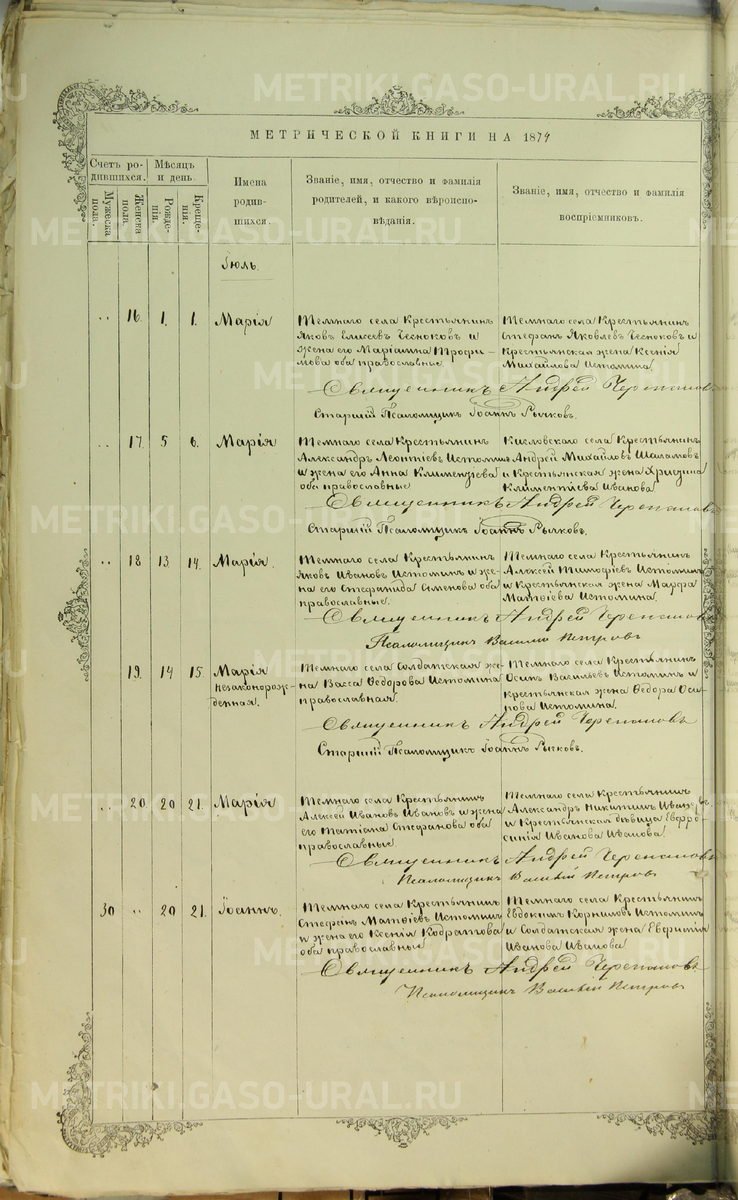 METRIKI.GASO-URAL.RU
МЕТРИЧЕСКОЙ КНИГИ НА 1874
Счетъ ро-
дившихся.
Мѣсяцъ
и день.
Мужеска
пола.
Женска
пола.
Рожде-
нія.
Креще-
нія.
Имена
родив-
шихся.
Званіе, имя, отчество и фамилія
родителей, и какого вѣроиспо-
вѣданія.
Званіе, имя, отчество и фамилія
воспріемниковъ.
Іюль.
16. 1. 1. Марія
Темнаго села Крестьянинъ
Яковъ Елисеевъ Чесноковъ и
жена его Маріамна Трофи-
мова оба православные.
Темнаго села Крестьянинъ
Стефанъ Яковлевъ Чесноковъ и
Крестьянская жена Ксенія
Михайлова Истомина.
Священникъ Андрей Черепановъ
Старшій Псаломщикъ Іоаннъ Рычковъ.
17. 5 6. Марія
Темнаго села Крестьянинъ
Александръ Леонтіевъ Истоминъ
и жена его Анна Климентіева
оба православные
Кисловскаго села Крестьянинъ
Андрей Михайловъ Шалаповъ
и Крестьянская жена Христина
Климентіева Иванова
Священникъ Андрей Черепановъ
Старшій Псаломщикъ Іоаннъ Рычковъ.
18 13 14. Марія.
Темнаго села Крестьянинъ
Яковъ Ивановъ Истоминъ и же-
на его Стефанида Симонова оба
православные.
Темнаго села Крестьянинъ
Алексѣй Тимофіевъ Истоминъ
и Крестьянская жена Марфа
Матвіева Истомина.
Священникъ Андрей Черепановъ
Псаломщикъ Василій Петровъ
19. 14 15. Марія
незаконорож-
денная.
Темнаго села Солдатская же-
на Васса Ѳедорова Истомина
православная.
Темнаго села Крестьянинъ
Осипъ Васильевъ Истоминъ и
крестьянская жена Ѳедора Оси-
пова Истомина.
Священникъ Андрей Черепановъ
Старшій Псаломщикъ Іоаннъ Рычковъ.
20 20 21. Марія
Темнаго села Крестьянинъ
Алексѣй Ивановъ Ивановъ и жена
его Татіана Стефанова оба
православные.
Темнаго села Крестьянинъ
Александръ Никитинъ Ивановъ
и Крестьянская дѣвица Евфро-
синія Иванова Иванова.
Священникъ Андрей Черепановъ
Псаломщикъ Василій Петровъ
30 " 20 21. Іоаннъ.
Темнаго села Крестьянинъ
Стефанъ Матвіевъ Истоминъ
и жена его Ксенія Кодратова
оба православные
Темнаго села Крестьянинъ
Евдокимъ Корниловъ Истоминъ
и Солдатская жена Евфимія
Иванова Иванова
Священникъ Андрей Черепановъ
Псаломщикъ Василій Петровъ